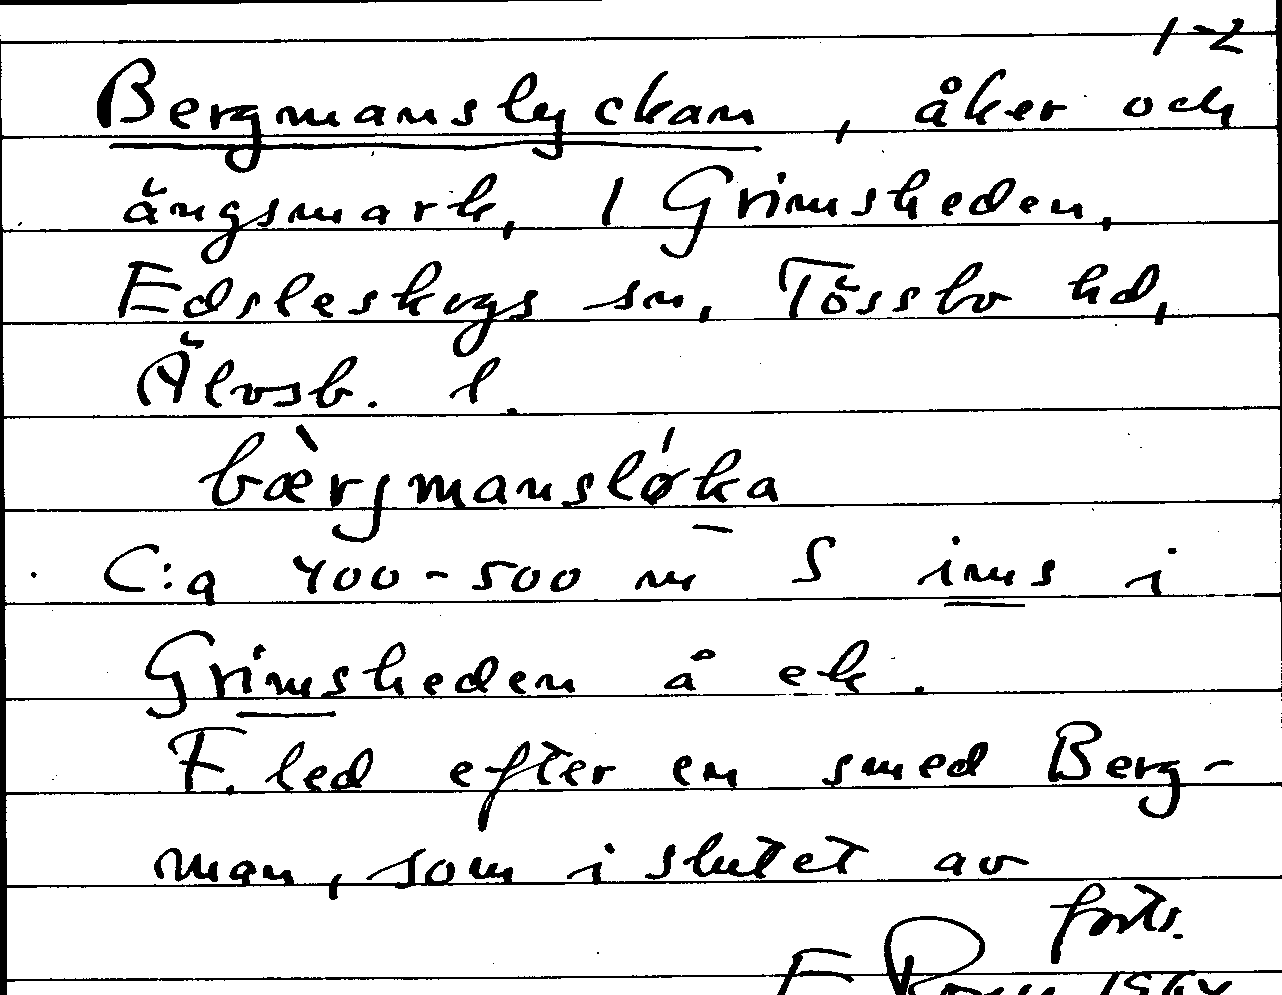 1-2
Bergmanslyckan, åker och
ängsmark, 1 Grimsheden,
Edsleskogs sn, Tössbo hd,
Älvsb. l.
bæ̀rjmanslǿka
C:a 400-500 m S ims i
Grimsheden å ek.
F. led efter en smed Berg-
man, som i slutet av
forts.